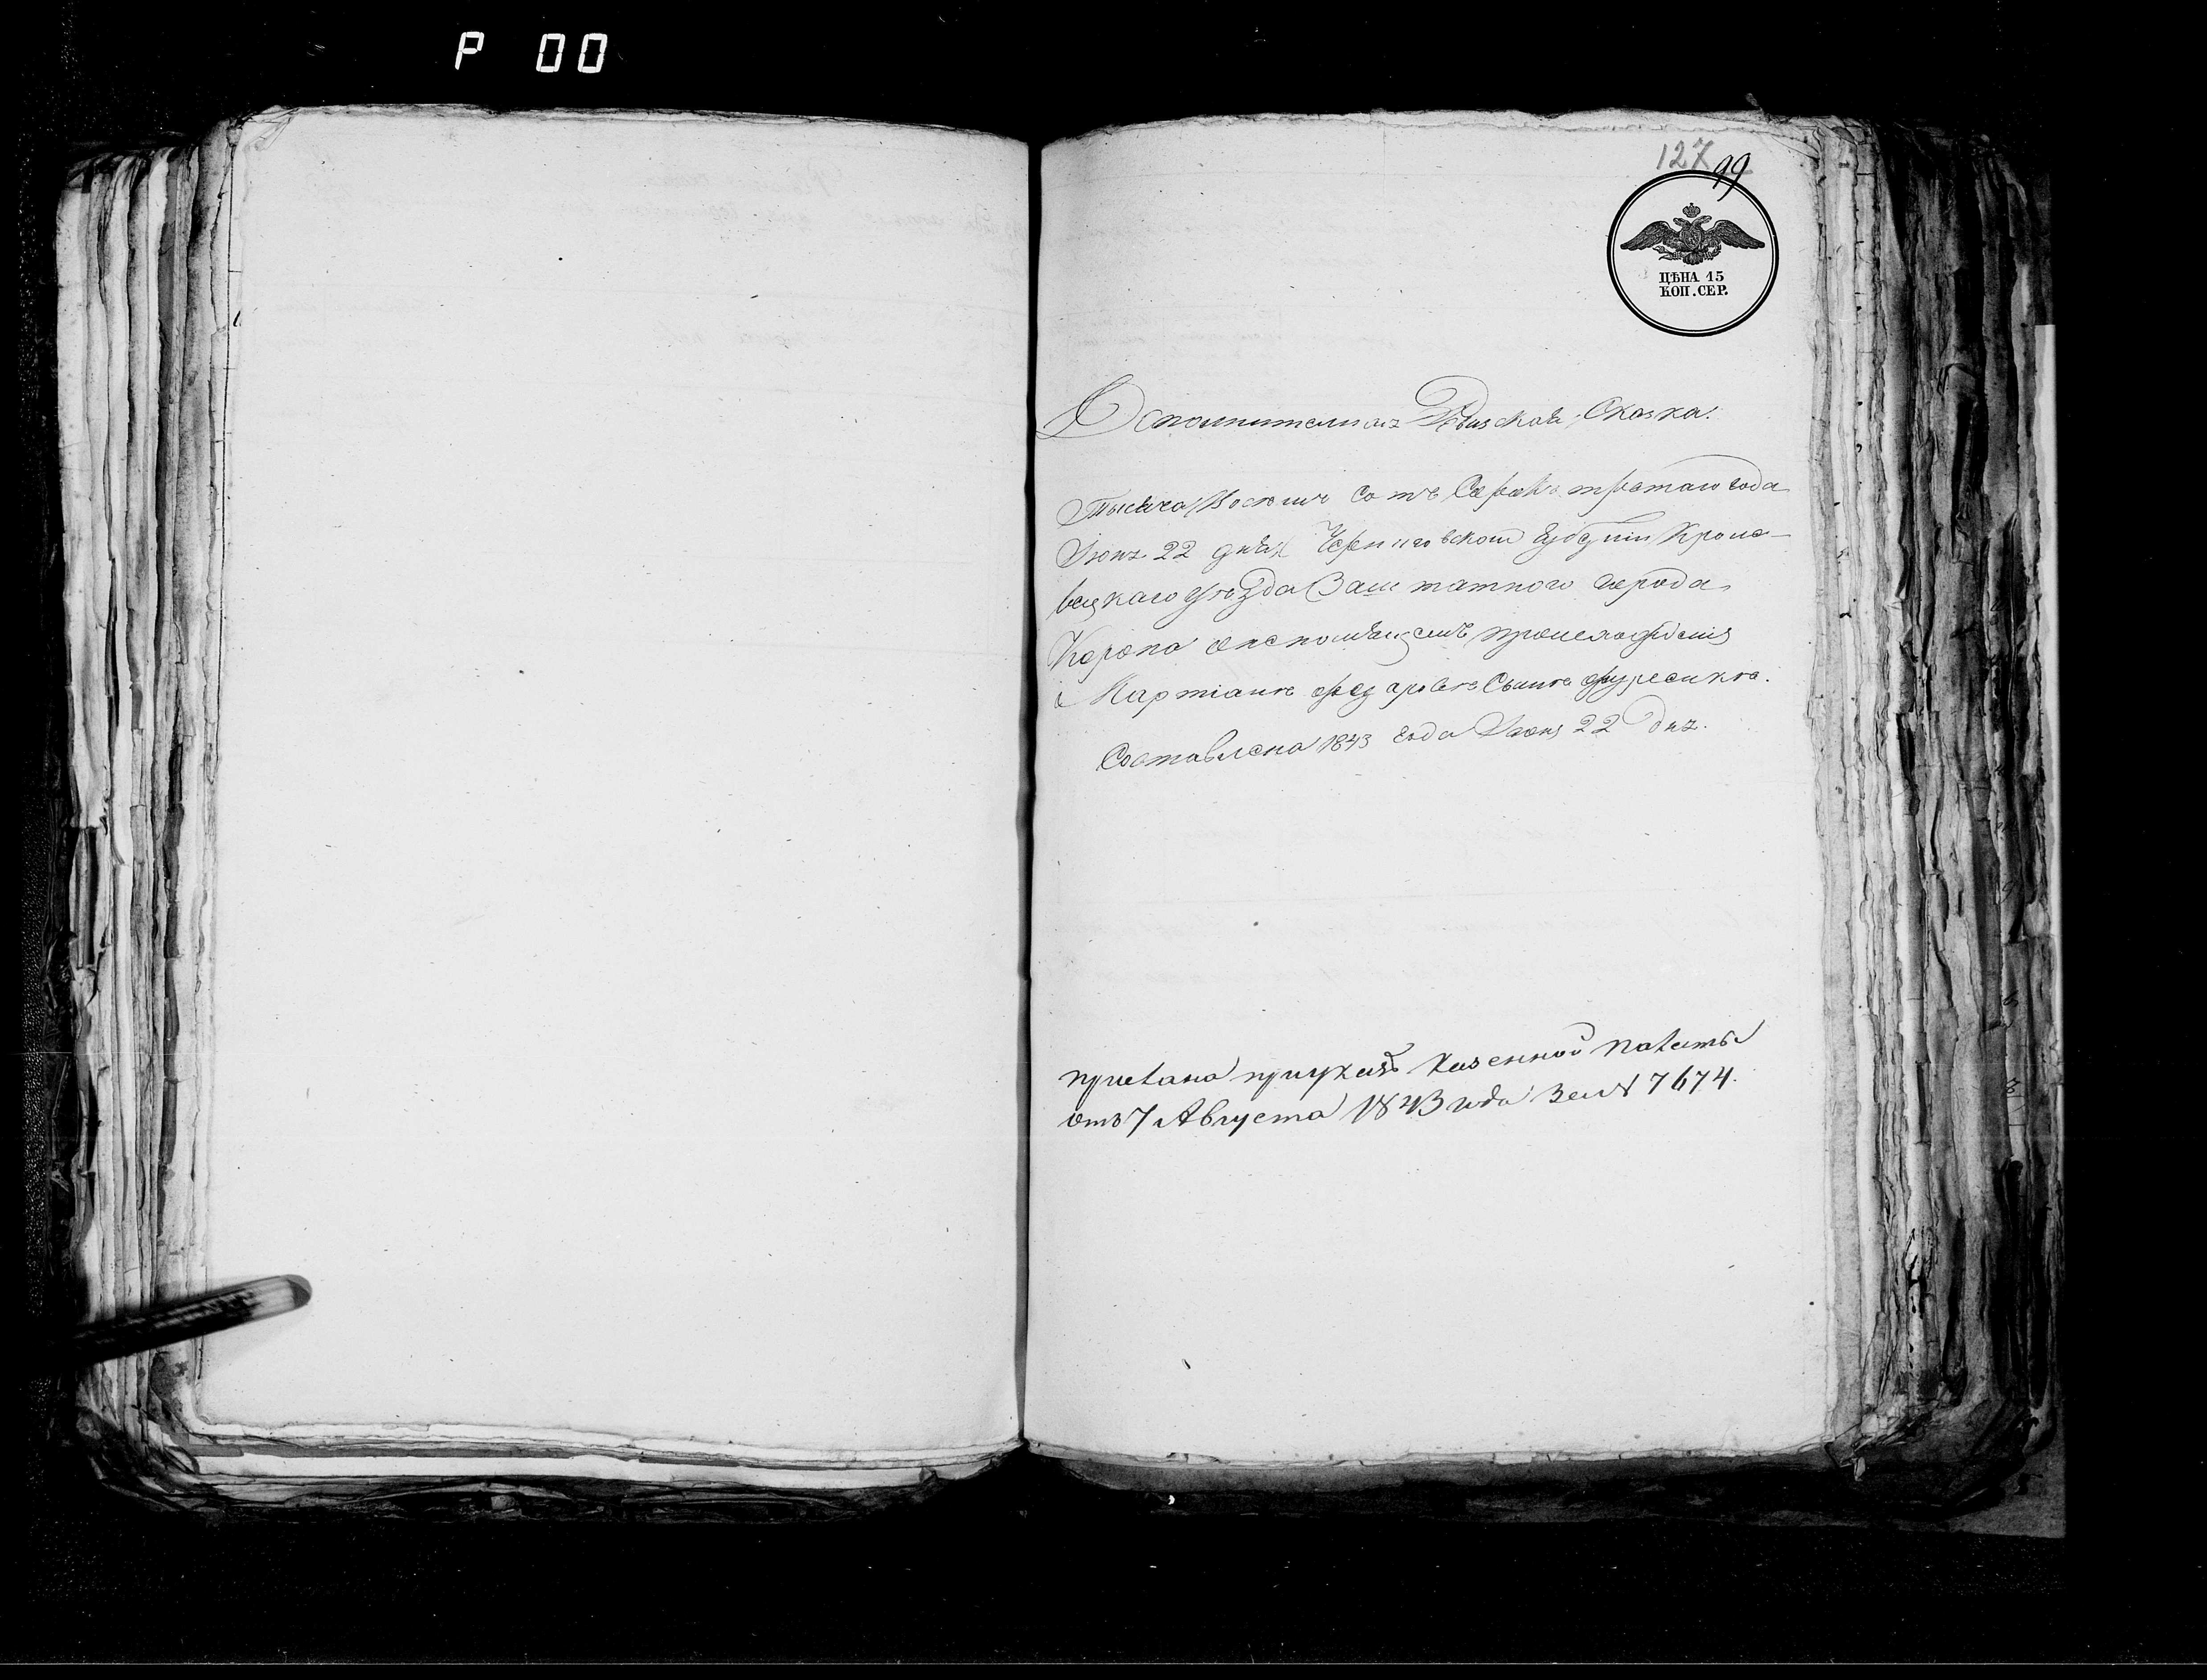 P 00
127 99
ЦѢНА 15
КОП. СЕР.
Дополнительная Ревизская Сказка.
Тысяча Восемь сотъ Сорокъ третьяго года
Іюня 22 дня Черниговской Губерніи Кроле-
вецкаго уѣзда Заштатного города
Коропа о происхожденія
Мартіане Сыне
Составлена 1843 года Іюня 22 дня.
прислана при указѣ Казенной Палаты
отъ 7 Августа 1843 года за № 7674.